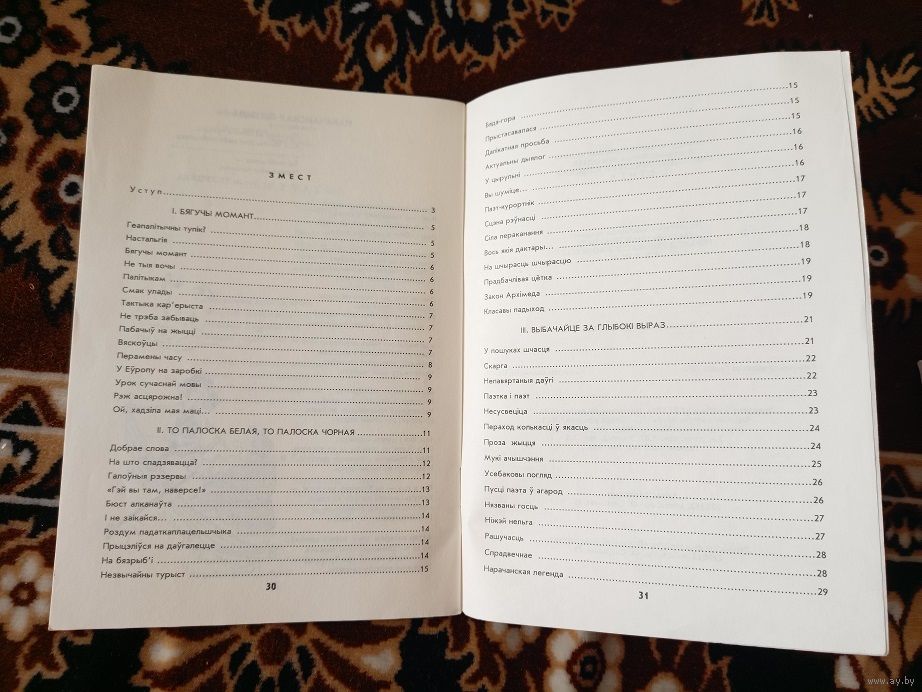 ЗМЕСТ
Уступ........ 3
I. БЯГУЧЫ МОМАНТ........ 5
Геапалітычны тупік? ........ 5
Настальгія ........ 5
Бягучы момант ........ 5
Не тыя вочы ........ 6
Палітыкам ........ 6
Смак улады ........ 6
Тактыка кар'ерыста ........ 7
Не трэба забываць ........ 7
Пабачыў на жыцці ........ 7
Вяскоўцы ........ 7
Перамены часу ........ 8
У Еўропу на заробкі ........ 9
Урок сучаснай мовы ........ 9
Рэж асцярожна! ........ 9
Ой, хадзіла мая маці... ........ 9
II. ТО ПАЛОСКА БЕЛАЯ, ТО ПАЛОСКА ЧОРНАЯ ........ 11
Добрае слова ........ 11
На што спадзявацца? ........ 12
Галоўныя рэзервы ........ 12
«Гэй вы там, наверсе!» ........ 13
Бюст алканаўта ........ 13
І не заікайся... ........ 14
Роздум падаткаплацельшчыка ........ 14
Прыцэліўся на даўгалецце ........ 14
На бязрыб'і ........ 14
Незвычайны турыст ........ 15
30
Бяда-гора ........ 15
Прыстасавалася ........ 15
Далікатная просьба ........ 15
Актуальны дыялог ........ 16
У цырульні ........ 16
Вы шуміце... ........ 16
Паэт-курортнік ........ 17
Сцэна рэўнасці ........ 17
Сіла пераканання ........ 17
Вось якія дактары... ........ 18
На шчырасць шчырасцю ........ 18
Прадбачлівая цётка ........ 19
Закон Архімеда ........ 19
Класавы падыход ........ 19
III. ВЫБАЧАЙЦЕ ЗА ГЛЫБОКІ ВЫРАЗ ........ 21
У пошуках шчасця ........ 21
Скарга ........ 22
Непавяртаныя даўгі ........ 22
Паэтка і паэт ........ 23
Несусвеціца ........ 23
Пераход колькасці ў якасць ........ 24
Проза жыцця ........ 24
Мукі ачышчэння ........ 25
Усебаковы погляд ........ 26
Пусці паэта ў агарод ........ 26
Нязваны госць ........ 27
Нікэй нельга ........ 27
Рашучасць ........ 28
Спрадвечнае ........ 28
Нарачанская легенда ........ 29
31
www.ay.by